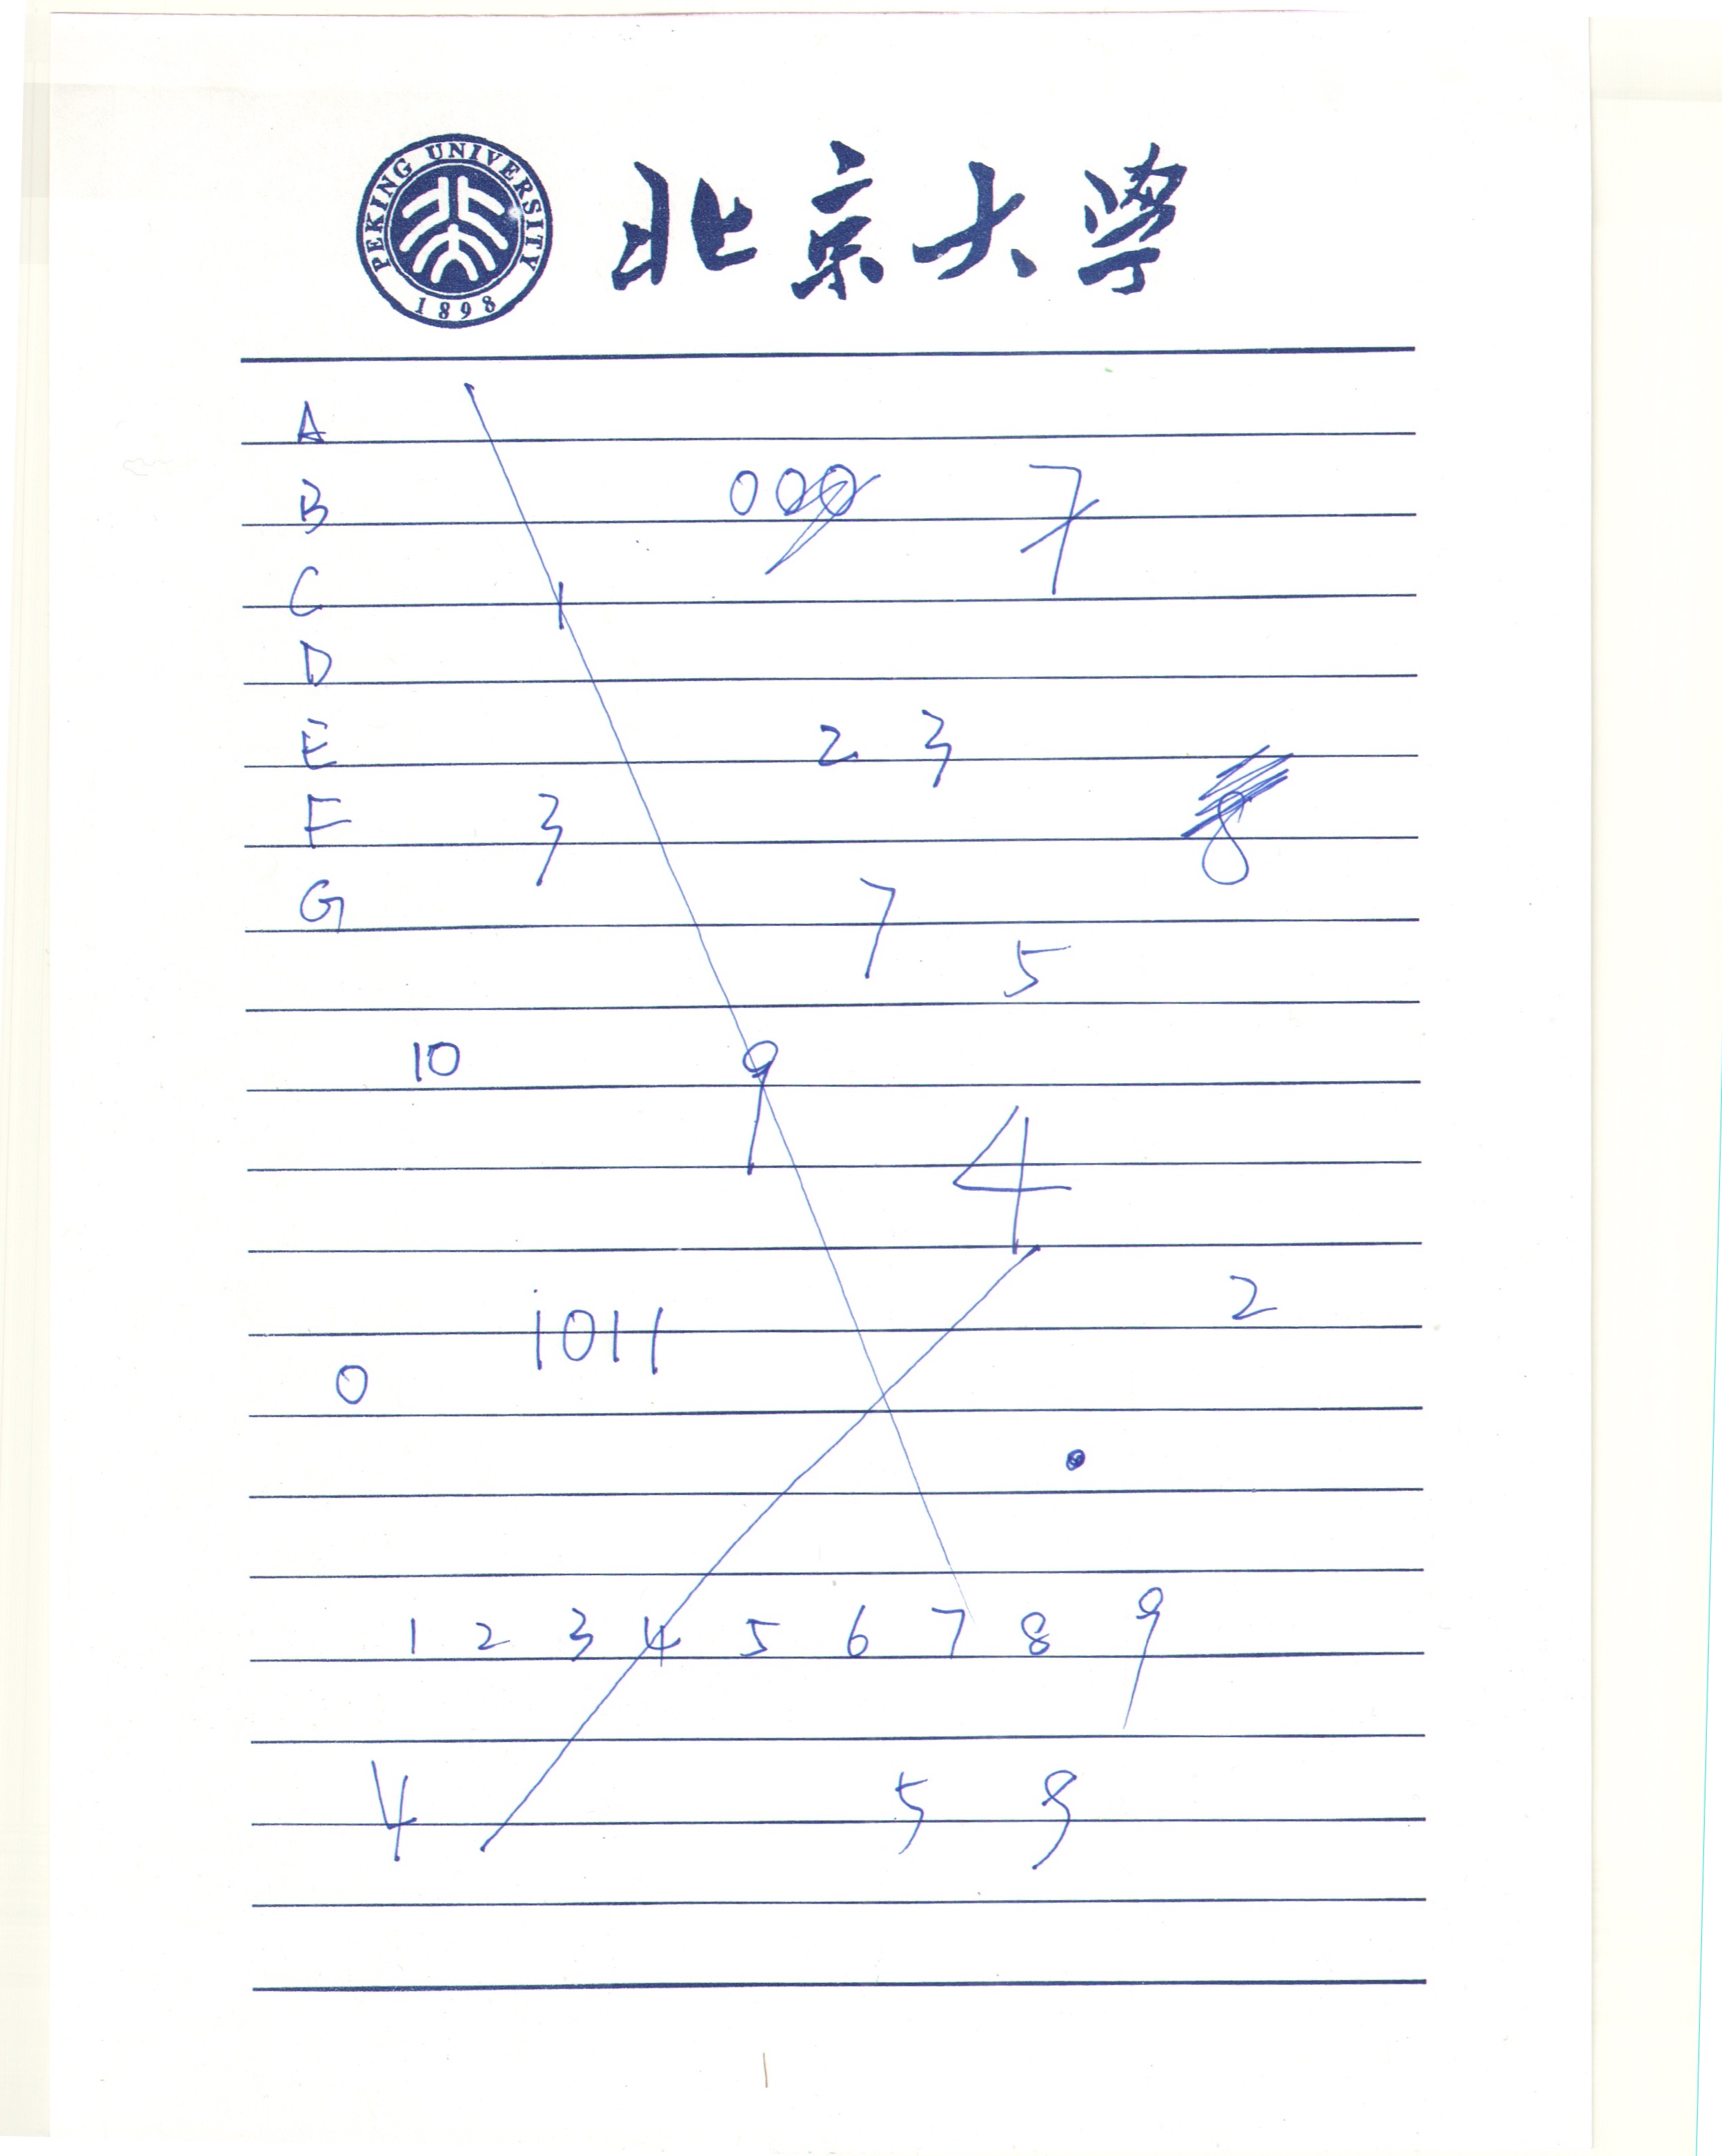 PEKING UNIVERSITY 1898
北京大學
A
B 000 7
C 1
D
E 2 3
F 3 8
G 7
5
10 9
4
2
1011
0
1 2 3 4 5 6 7 8 9
4 5 9